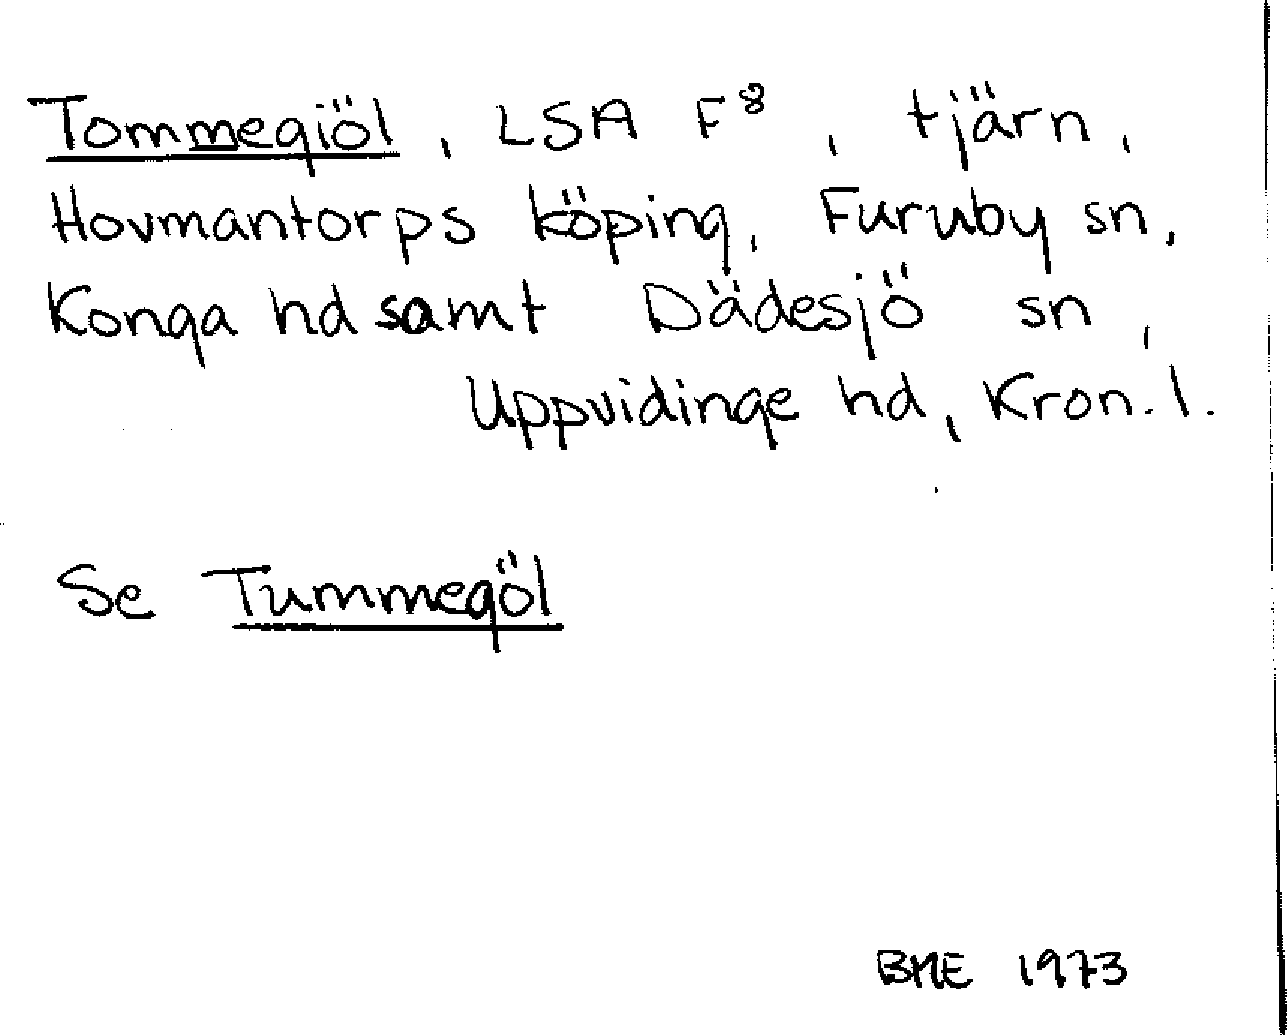 Tommegiöl, LSA F⁸, tjärn,
Hovmantorps köping, Furuby sn,
Konga hd samt Dädesjö sn,
Uppvidinge hd, Kron. l.
Se Tummegöl
BME 1973